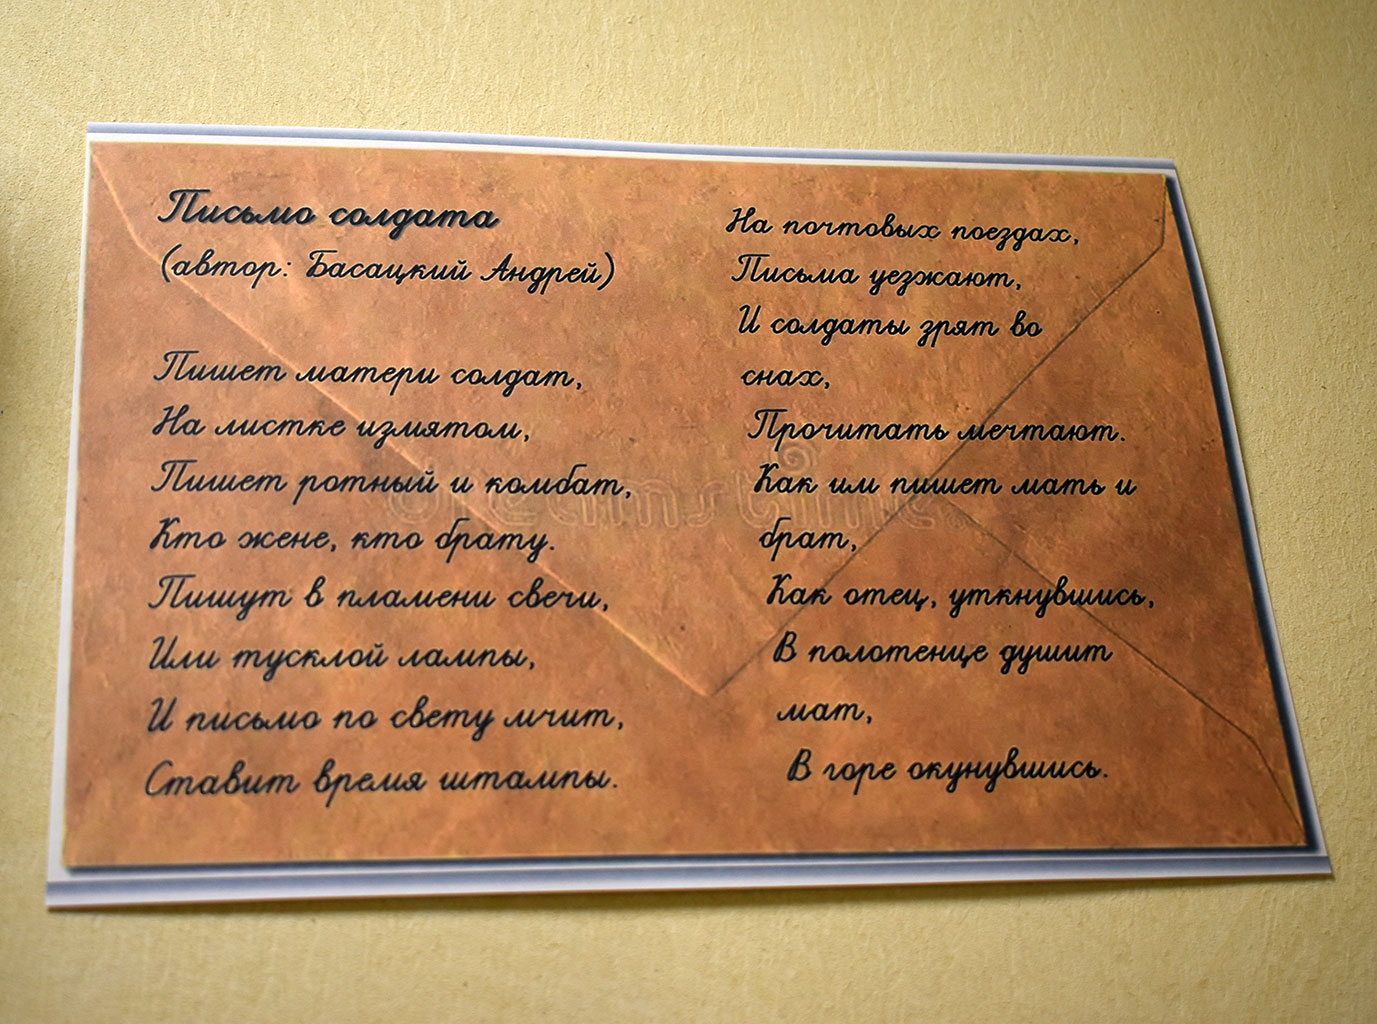 Письмо солдата
(автор: Басацкий Андрей)
Пишет матери солдат,
На листке измятом,
Пишет ротный и комбат,
Кто жене, кто брату.
Пишут в пламени свечи,
Или тусклой лампы,
И письмо по свету мчит,
Ставит время штампы.
На почтовых поездах,
Письма уезжают,
И солдаты зрят во
снах,
Прочитать мечтают.
Как им пишет мать и
брат,
Как отец, уткнувшись,
В полотенце душит
мат,
В горе окунувшись.
dreamstime